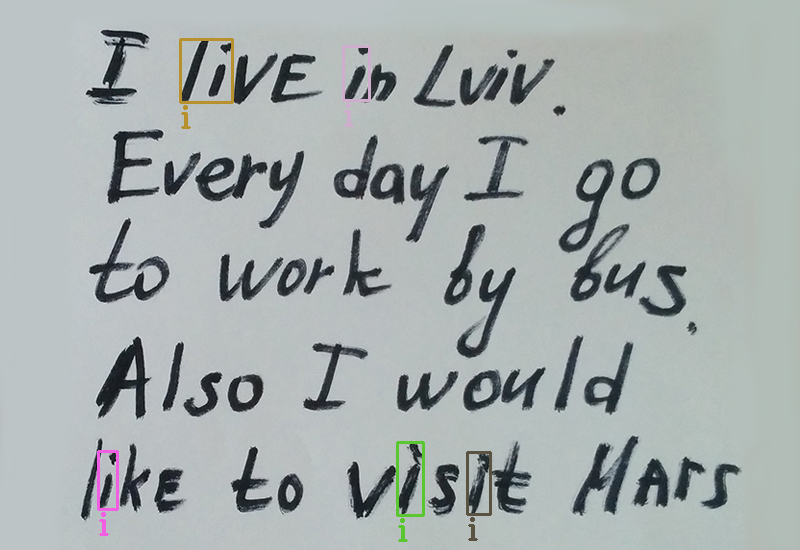 I livE in Lviv.
Every day I go
to work by bus.
Also I would
likE to visit MArs